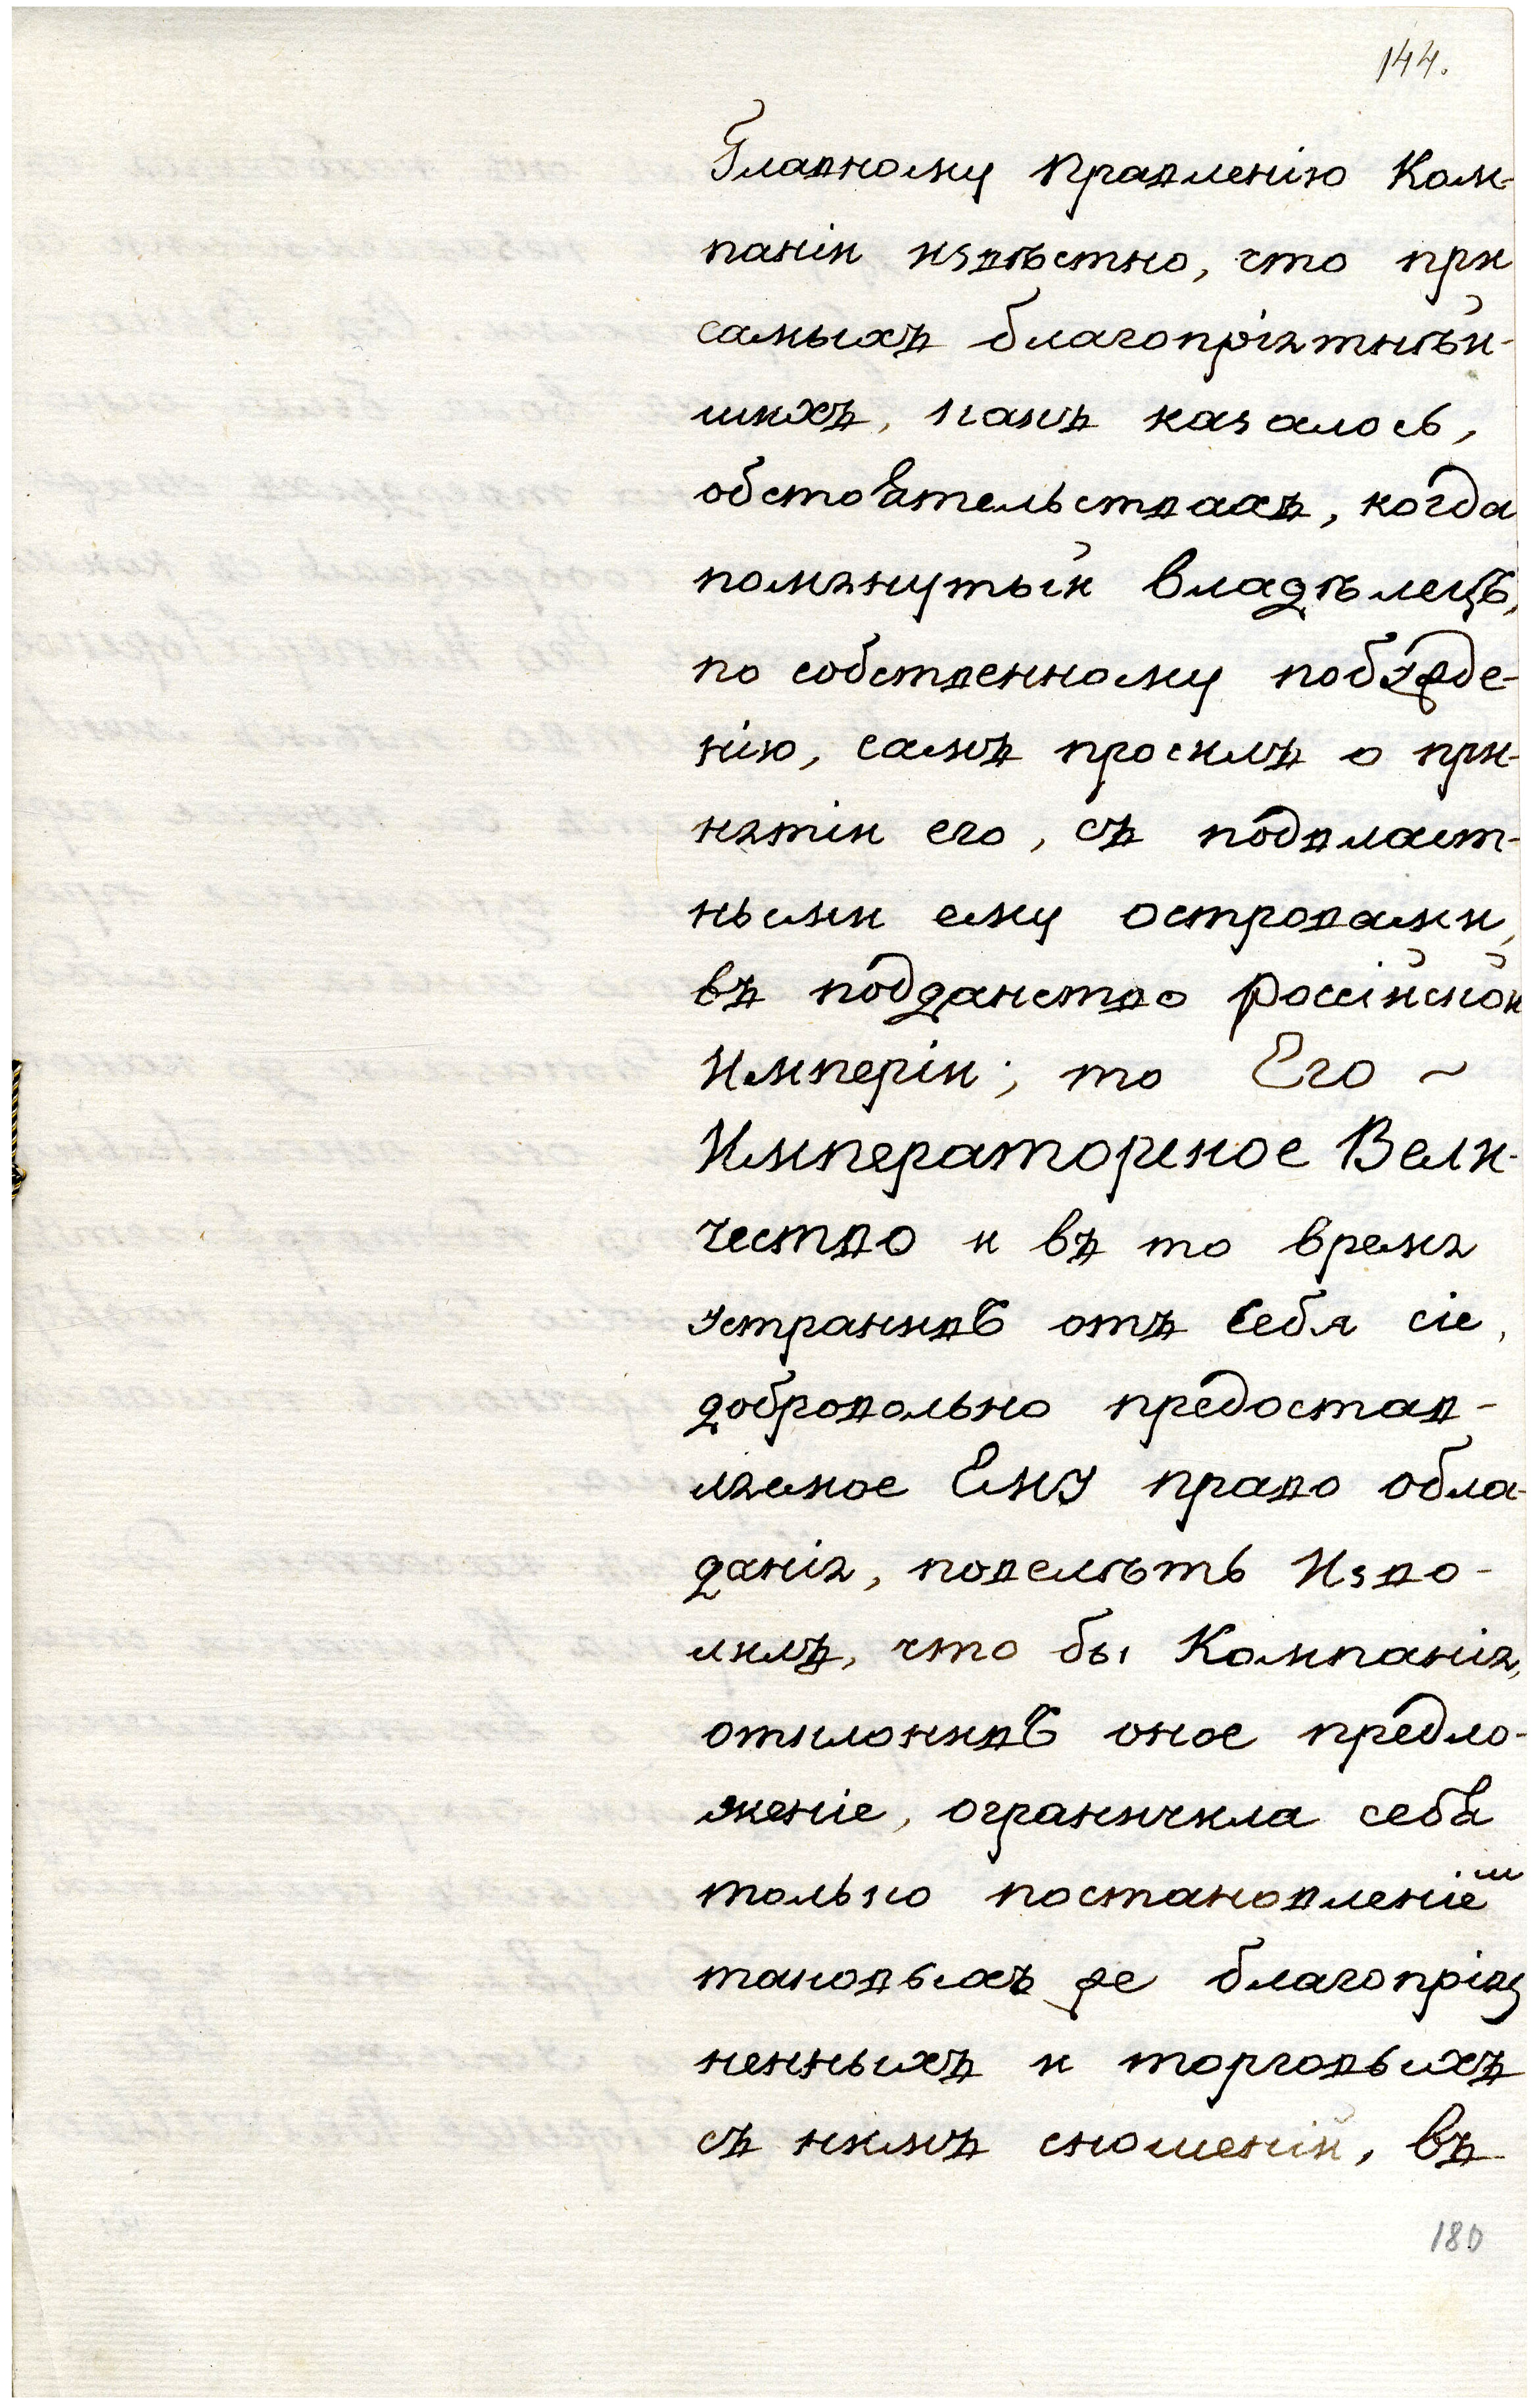 144.
Главному Правленію Ком-
паніи извѣстно, что при
самыхъ благопріятнѣй-
шихъ, какъ казалось,
обстоятельствахъ, когда
помянутый Владѣлецъ,
по собственному побужде-
нію, самъ просилъ о при-
нятіи его, съ подвласт-
ными ему островами,
въ подданство Россійской
Имперіи; то Его ~
Императорское Вели-
чество и въ то время
устранивъ отъ Себя сіе,
добровольно предостав-
ляемое Ему право обла-
данія, повелѣть Изво-
лилъ, что бы Компанія,
отклонивъ оное предло-
женіе, ограничила себя
только постановленіем
таковыхъ же благопріяз
ненныхъ и торговыхъ
съ нимъ сношеній, въ
180